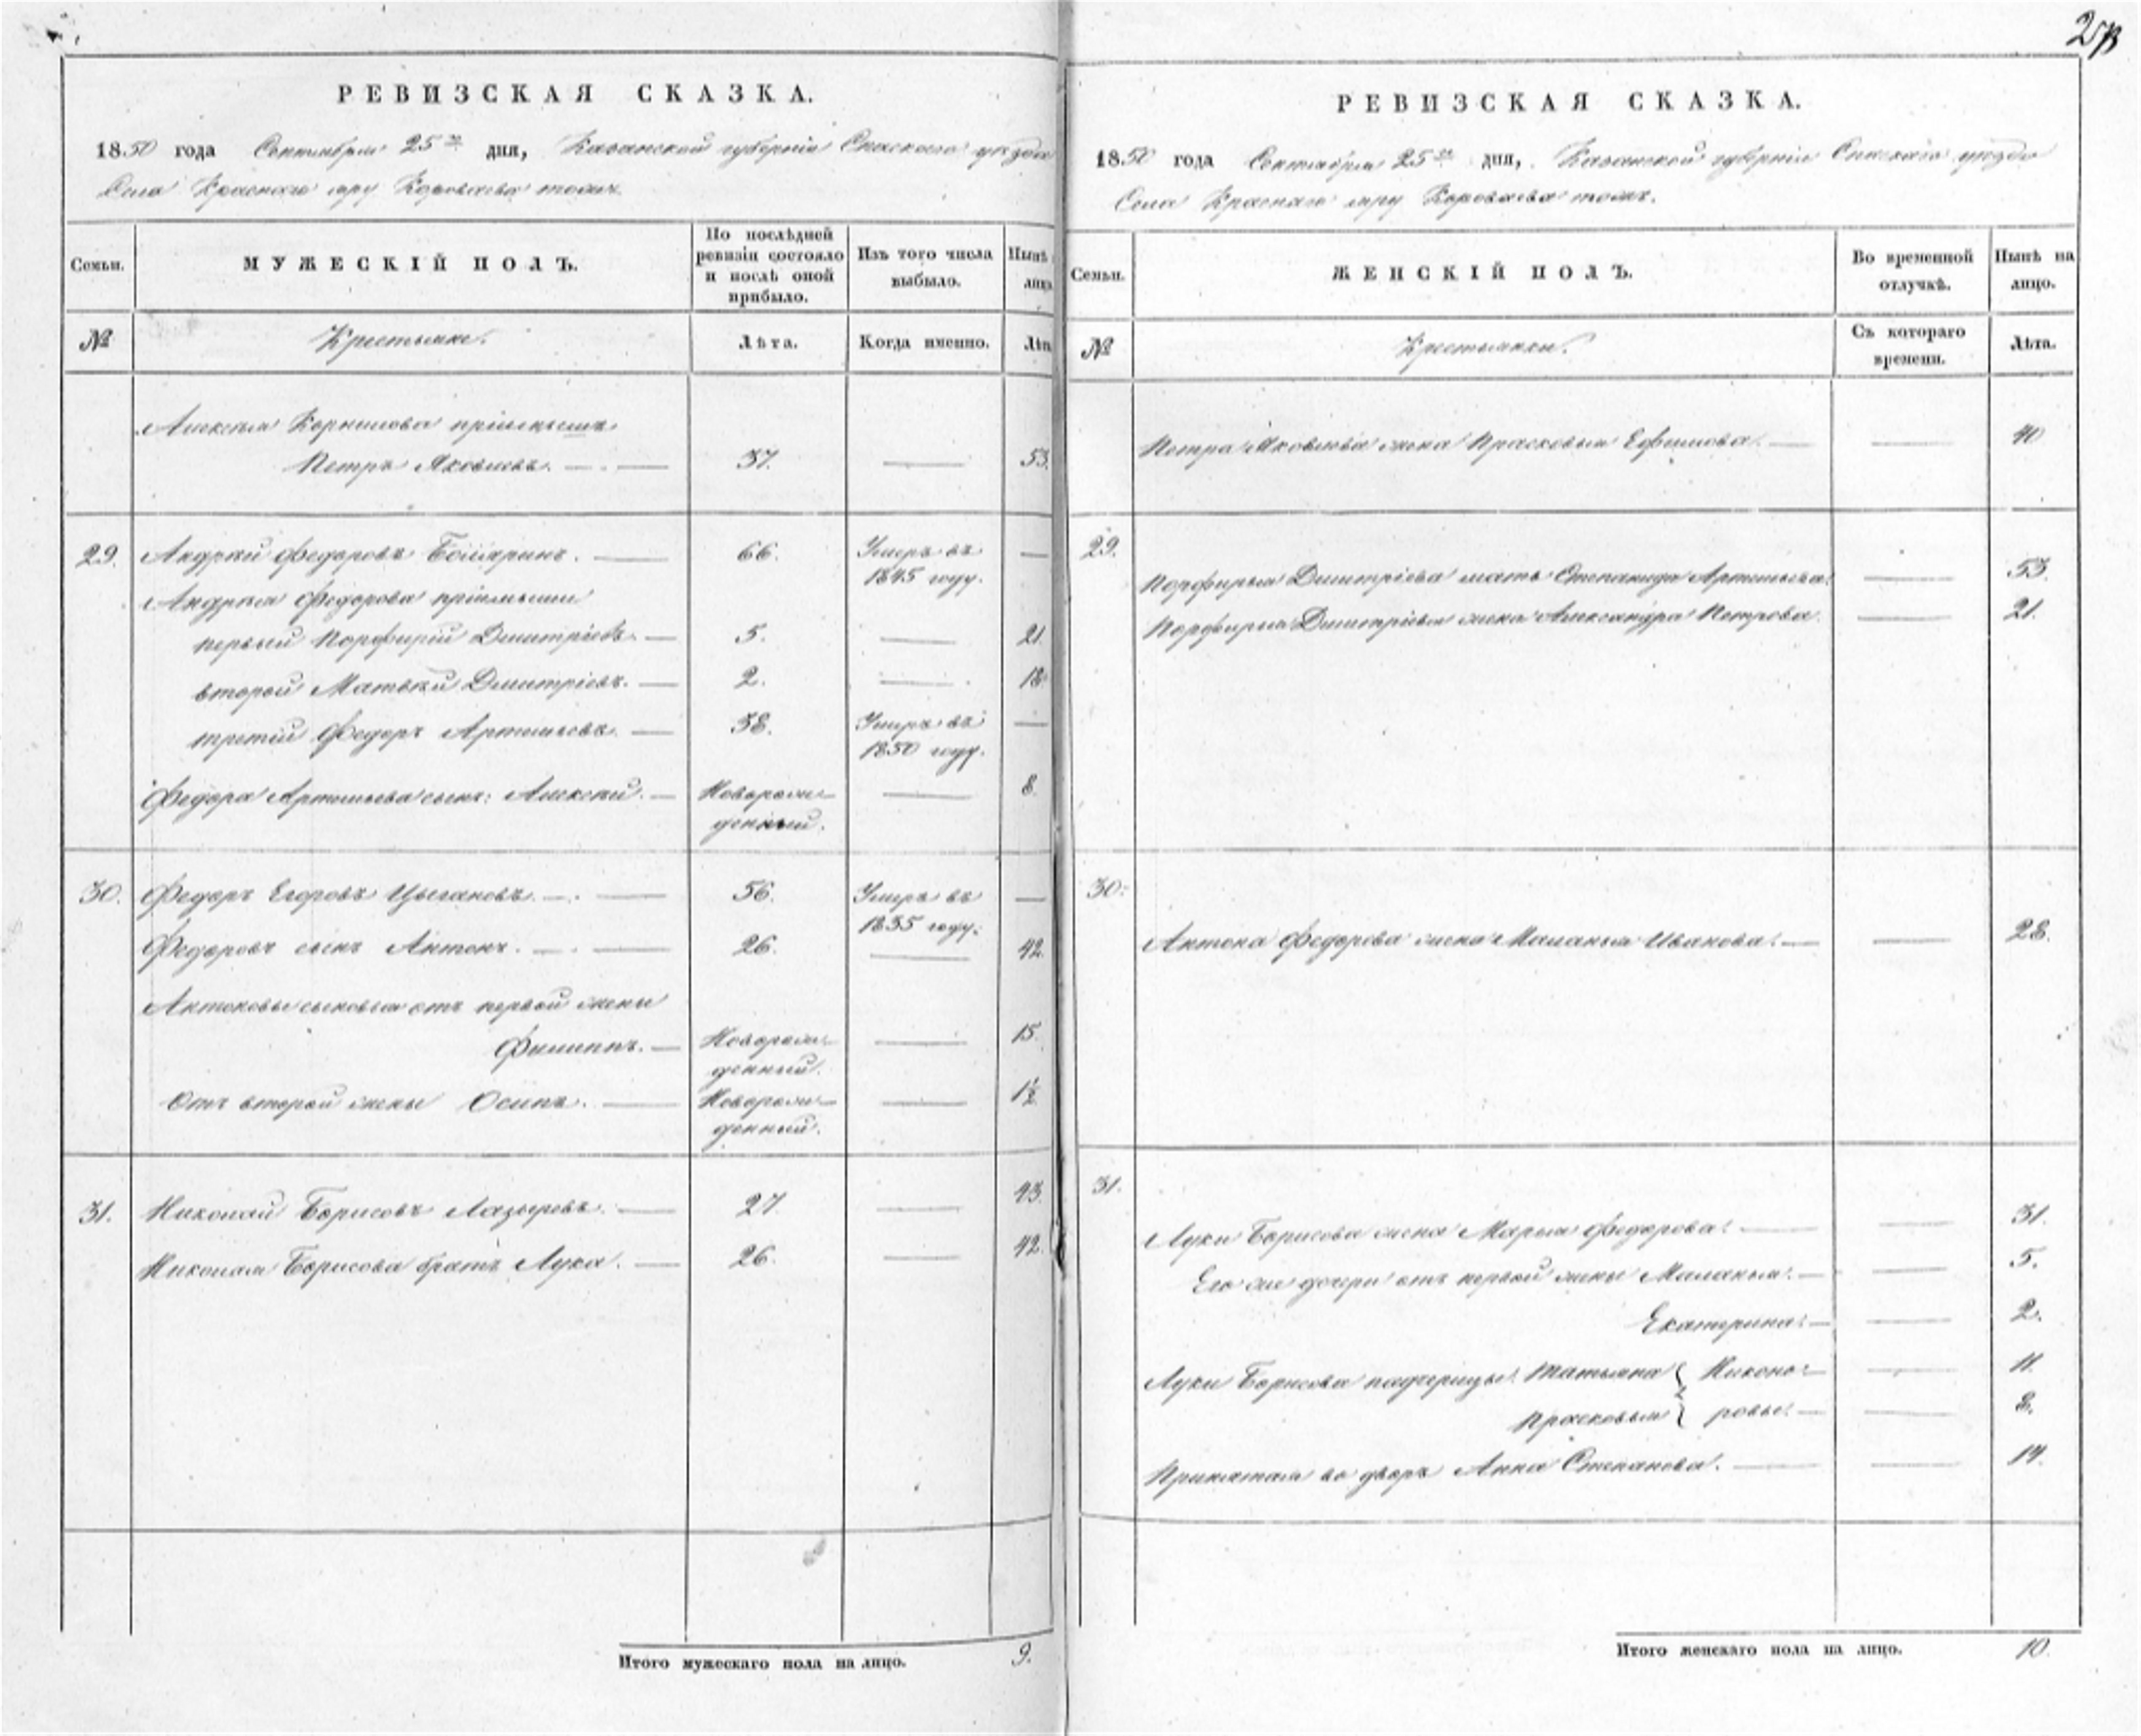 РЕВИЗСКАЯ СКАЗКА.
1850 года Сентября 25го дня, Казанской губернiи Спаскаго уѣзда
Села Краснаго яру Короваева тожъ
Семьи.
МУЖЕСКІЙ ПОЛЪ.
По послѣдней
ревизіи состояло
и послѣ оной
прибыло.
Изъ того числа
выбыло.
Нынѣ
лицо
№
Крестьяне.
Лѣта.
Когда именно.
Лѣта
Алексѣя Корнилова прiемышъ
Петръ Яковлевъ. — 37. — 53.
29. Андрей Федоровъ Бояринъ. — 66. Умеръ въ —
1845 году.
Андрея Федорова прiемыши
первый Порфирiй Дмитрiевъ. — 5. — 21.
второй Матвѣй Дмитрiевъ. — 2. — 18.
третiй Федоръ Артемьевъ. — 38. Умеръ въ —
1850 году.
Федора Артемьева сынъ: Алексѣй. — Новорож- — 8.
денный.
30. Федоръ Егоровъ Цыгановъ. — 56. Умеръ въ —
1835 году.
Федоровъ сынъ Антонъ. — 26. — 42.
Антоновы сыновья отъ первой жены
Филиппъ. — Новорож- — 15.
денный.
Отъ второй жены Осипъ. — Новорож- — 1½
денный.
31. Николай Борисовъ Лазыревъ. — 27. — 43.
Николая Борисова братъ Лука. — 26. — 42.
Итого мужескаго пола на лицо. 9.
РЕВИЗСКАЯ СКАЗКА.
1850 года Сентября 25го дня, Казанской губернiи Спаскаго уѣзда
Села Краснаго яру Короваева тожъ.
Семьи.
ЖЕНСКІЙ ПОЛЪ.
Во временной
отлучкѣ.
Нынѣ на
лицо.
№
Крестьянки.
Съ котораго
времени.
Лѣта.
Петра Яковлева жена Прасковья Ефимова. — — 40
29.
Порфирья Дмитрiева мать Степанида Артемьева. — 53.
Порфирья Дмитрiева жена Александра Петрова. — 21.
30.
Антона Федорова жена Маланья Иванова. — — 28.
31.
Луки Борисова жена Марья Федорова. — — 31.
Его же дочери отъ первой жены Маланья. — — 5.
Екатерина. — — 2.
Луки Борисова падчерицы. Татьяна } Никоно- — 11.
Прасковья } ровы. — — 8.
Принятая во дворъ Анна Степанова. — — 14.
Итого женскаго пола на лицо. 10.